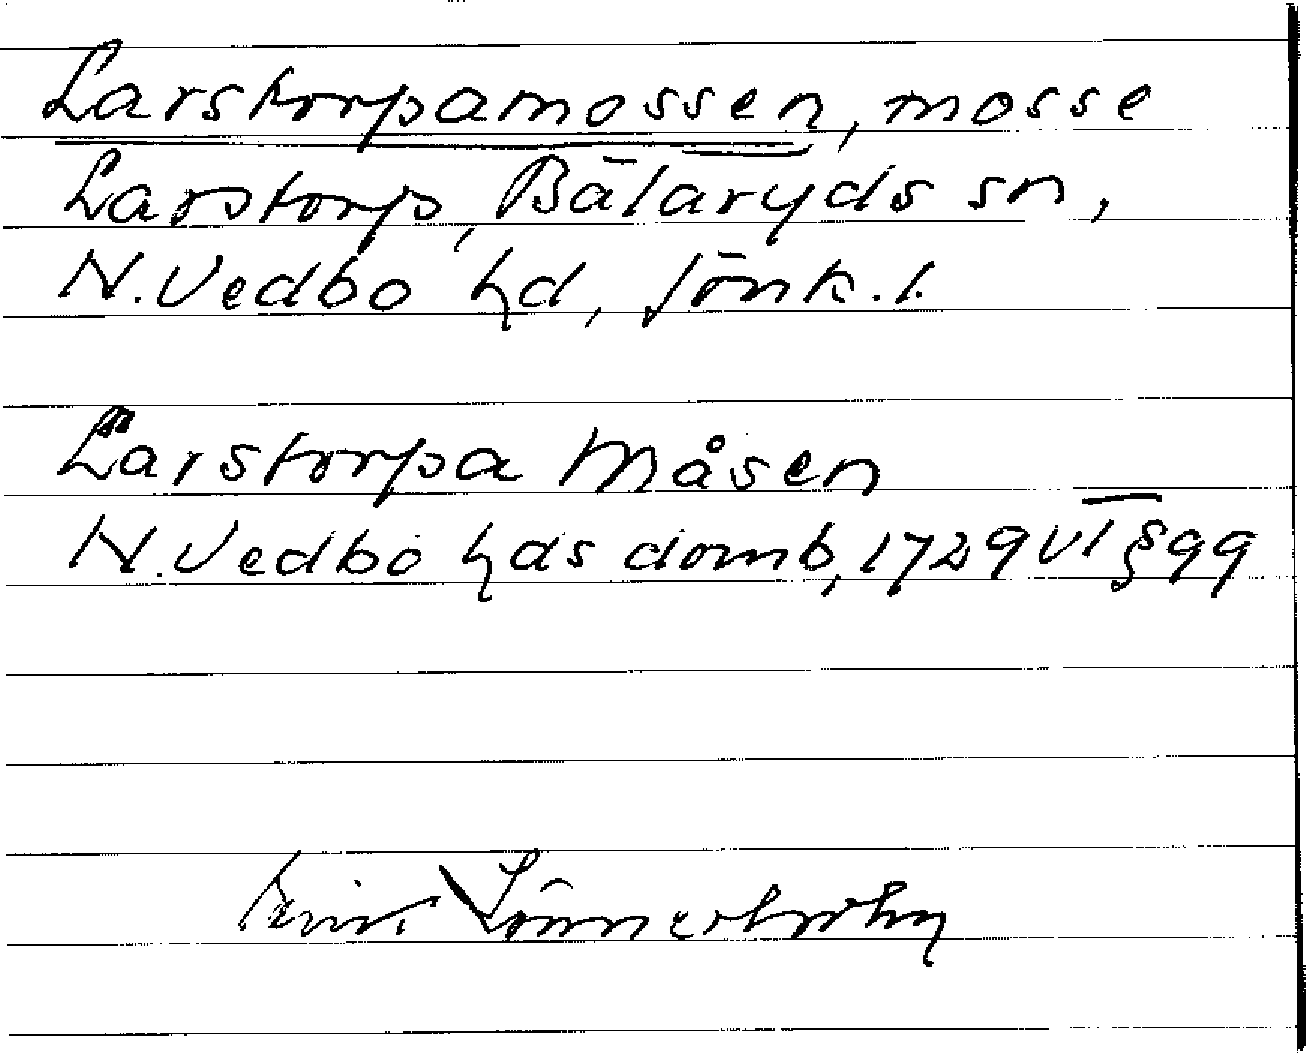 Larstorpamossen, mosse
Larstorp, Bälaryds sn,
N. Vedbo hd, Jönk. l.
Larstorpa Måsen
N. Vedbo hds domb, 1729 VI § 99
Lönnerholm